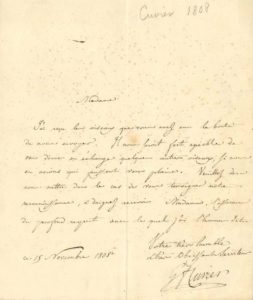 Cuvier 1808
Madame
J'ai reçu les oiseaux que vous avez eu la bonté
de nous envoyer. Il nous seroit fort agréable de
vous donner en échange quelques autres oiseaux, si nous
en avions qui puissent vous plaire. Veuillez
nous mettre dans le cas de vous témoigner notre
reconnoissance, & daignez recevoir Madame, l'assurance
du profond respect avec lequel j'ai l'honneur d'être
Votre très humble
& très obéissant serviteur
ce 15 Novembre 1808
Cuvier